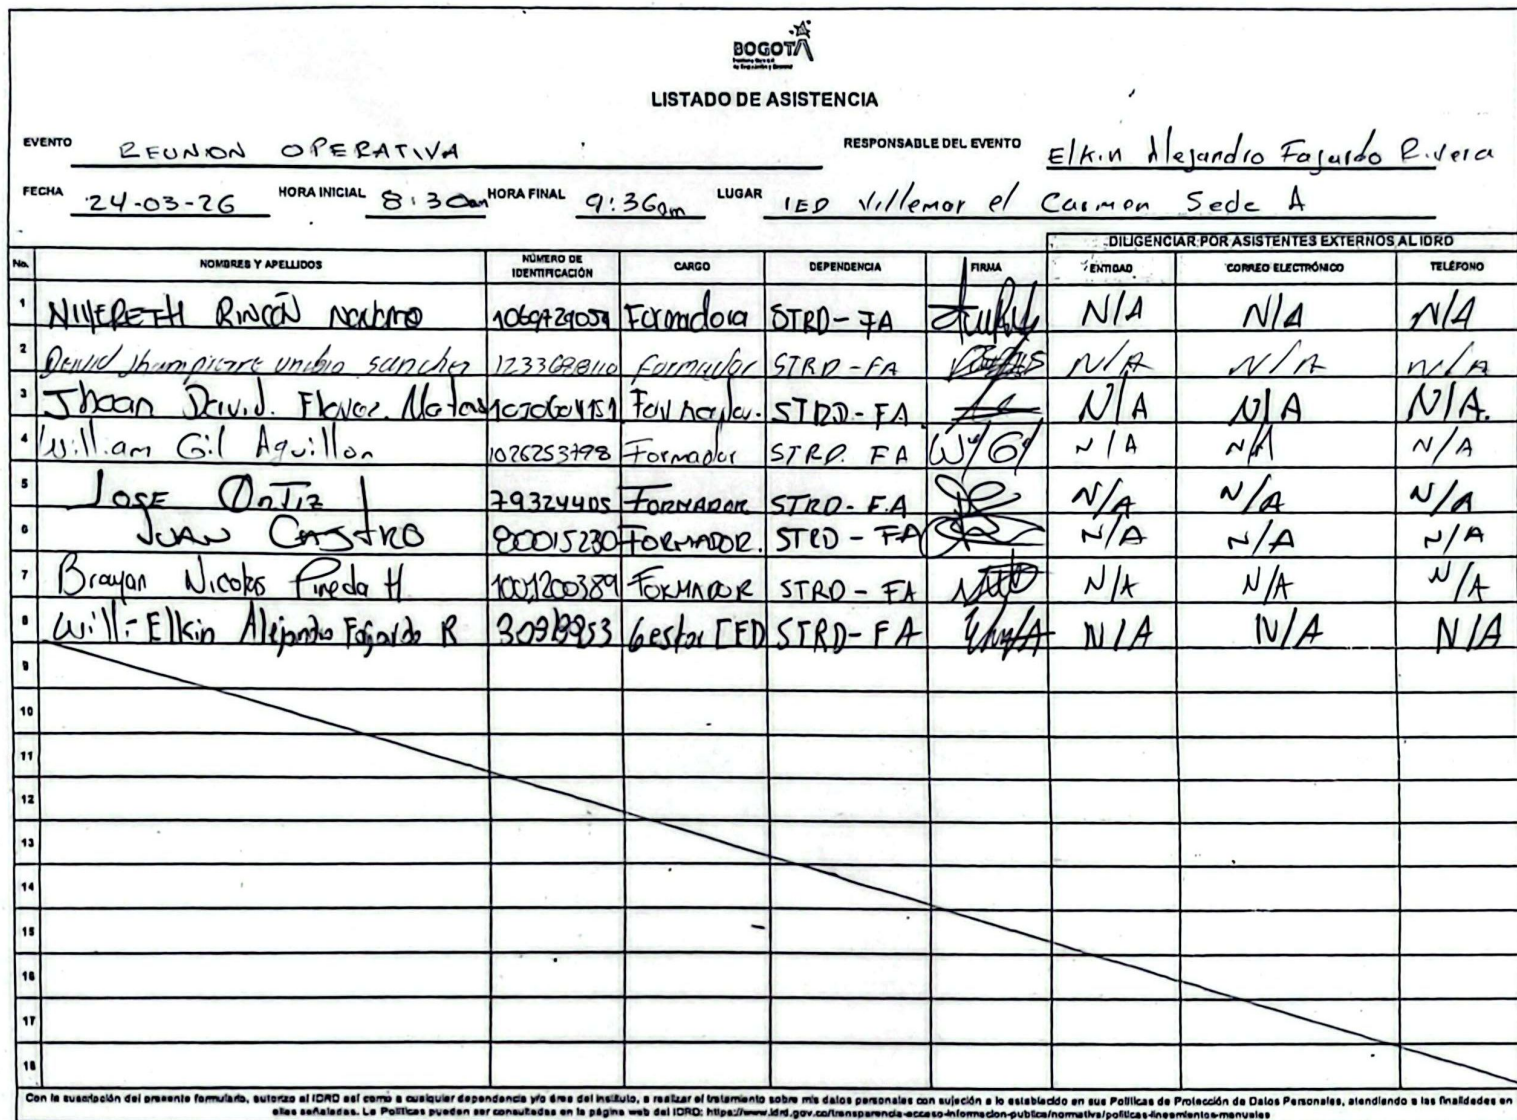 BOGOTÁ
LISTADO DE ASISTENCIA
EVENTO REUNION OPERATIVA RESPONSABLE DEL EVENTO Elkin Alejandro Fajardo Rivera
FECHA 24-03-26 HORA INICIAL 8:30am HORA FINAL 9:36am LUGAR IED Villemar el Carmen Sede A
DILIGENCIAR POR ASISTENTES EXTERNOS AL IDRD
No. NOMBRES Y APELLIDOS NÚMERO DE IDENTIFICACIÓN CARGO DEPENDENCIA FIRMA ENTIDAD CORREO ELECTRÓNICO TELÉFONO
1 RINCÓN 1069729059 Formadora STRD-FA N/A N/A N/A
2 sanchez Formador STRD-FA N/A N/A N/A
3 Jhoan David. STRD-FA N/A N/A N/A.
4 William Gil Aguillon 1026253798 Formador STRD. FA N/A N/A N/A
5 JOSE ORTIZ 79324405 FORMADOR STRD-F.A N/A N/A N/A
6 JUAN CASTRO 80015230 FORMADOR. STRD-FA N/A N/A N/A
7 Brayan Nicolas Pineda H 1001200389 FORMADOR STRD-FA N/A N/A N/A
8 Will- Elkin Alejandro Fajardo R Gestor STRD-FA N/A N/A N/A
9
10
11
12
13
14
15
16
17
18
Con la suscripción del presente formulario, autorizo al IDRD así como a cualquier dependencia y/o área del instituto, a realizar el tratamiento sobre mis datos personales con sujeción a lo establecido en sus Políticas de Protección de Datos Personales, atendiendo a las finalidades en
ellas señaladas. La Políticas pueden ser consultadas en la página web del IDRD: https://www.idrd.gov.co/transparencia-acceso-informacion-publica/normativa/politicas-lineamientos-manuales